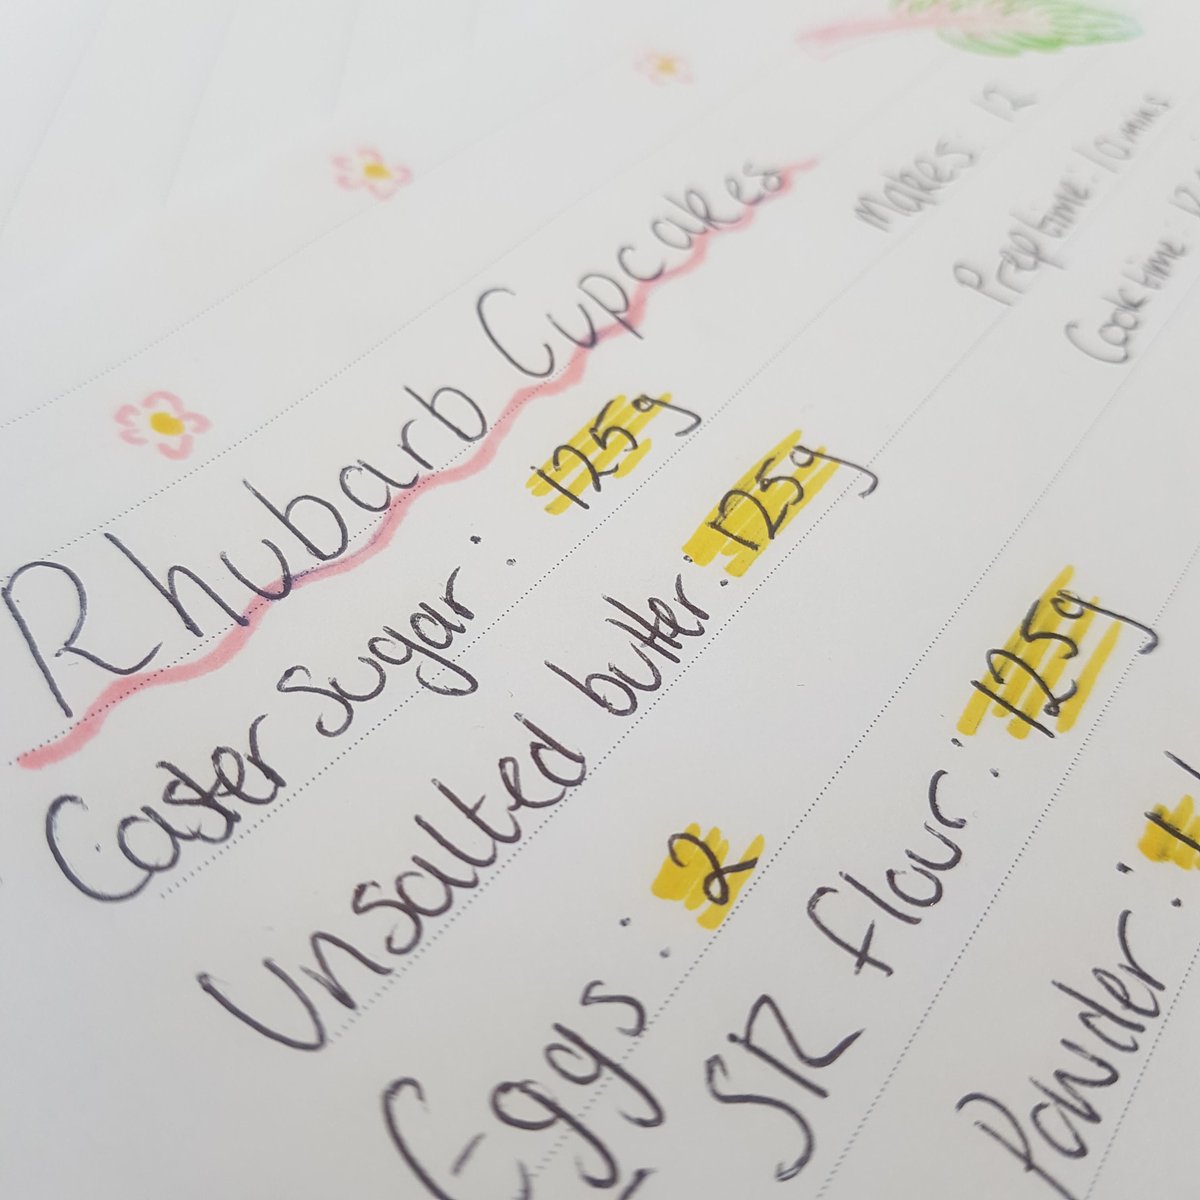 Rhubarb Cupcakes
Makes: 12
Prep time: 10 mins
Cook time:
Caster sugar: 125g
Unsalted butter: 125g
Eggs: 2
SR flour: 125g
Powder: 1